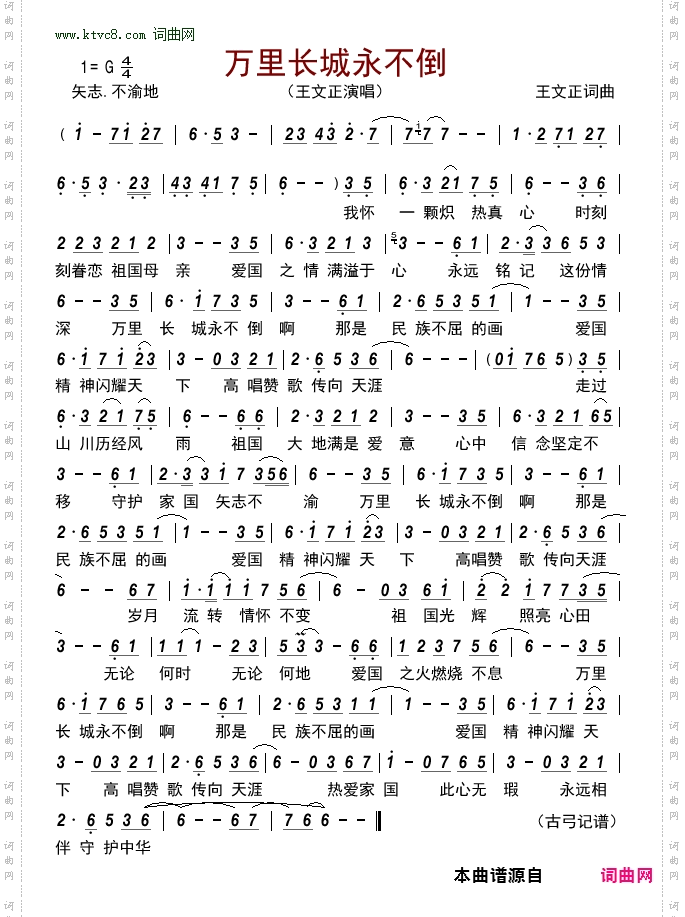 www.ktvc8.com 词曲网
万里长城永不倒
1=G 4/4
矢志.不渝地
（王文正演唱）
王文正词曲
( 1 - 7 1 2 7 | 6 · 5 3 - | 2 3 4 3 2 · 7 | 7 1 7 7 - | 1 · 2 7 1 2 7 |
6 · 5 3 · 2 3 | 4 3 4 1 7 5 | 6 - - ) 3 5 | 6 · 3 2 1 7 5 | 6 - - 3 6 |
我怀 一 颗炽 热真 心 时刻
2 2 3 2 1 2 | 3 - - 3 5 | 6 · 3 2 1 3 | 5 3 - - 6 1 | 2 · 3 3 6 5 3 |
刻眷恋 祖国母 亲 爱国 之 情 满溢于 心 永远 铭 记 这份情
6 - - 3 5 | 6 · 1 7 3 5 | 3 - - 6 1 | 2 · 6 5 3 5 1 | 1 - - 3 5 |
深 万里 长 城永不 倒 啊 那是 民 族不屈 的画 爱国
6 · 1 7 1 2 3 | 3 - 0 3 2 1 | 2 · 6 5 3 6 | 6 - - - | ( 0 1 7 6 5 ) 3 5 |
精 神闪耀天 下 高 唱赞 歌 传向 天涯 走过
6 · 3 2 1 7 5 | 6 - - 6 6 | 2 · 3 2 1 2 | 3 - - 3 5 | 6 · 3 2 1 6 5 |
山 川历经风 雨 祖国 大 地满是 爱 意 心中 信 念坚定不
3 - - 6 1 | 2 · 3 3 1 7 3 5 6 | 6 - - 3 5 | 6 · 1 7 3 5 | 3 - - 6 1 |
移 守护 家 国 矢志不 渝 万里 长 城永不倒 啊 那是
2 · 6 5 3 5 1 | 1 - - 3 5 | 6 · 1 7 1 2 3 | 3 - 0 3 2 1 | 2 · 6 5 3 6 |
民 族不屈 的画 爱国 精 神闪耀 天 下 高唱赞 歌 传向天涯
6 - - 6 7 | 1 · 1 1 1 7 5 6 | 6 - 0 3 6 1 | 2 2 1 7 7 3 5 |
岁月 流 转 情怀 不变 祖 国光 辉 照亮 心田
3 - - 6 1 | 1 1 1 - 2 3 | 5 3 3 - 6 6 | 1 2 3 7 5 6 | 6 - - 3 5 |
无论 何时 无论 何地 爱国 之火燃烧 不息 万里
6 · 1 7 6 5 | 3 - - 6 1 | 2 · 6 5 3 5 1 | 1 - - 3 5 | 6 · 1 7 1 2 3 |
长 城永不倒 啊 那是 民 族不屈的画 爱国 精 神闪耀 天
3 - 0 3 2 1 | 2 · 6 5 3 6 | 6 - 0 3 6 7 | 1 - 0 7 6 5 | 6 - - 6 7 |
下 高 唱赞 歌 传向 天涯 热爱家 国 此心无 瑕 永远相
2 · 6 5 3 6 | 6 - - 6 7 | 7 6 6 - - ‖
（古弓记谱）
伴 守 护中华
本曲谱源自 词曲网